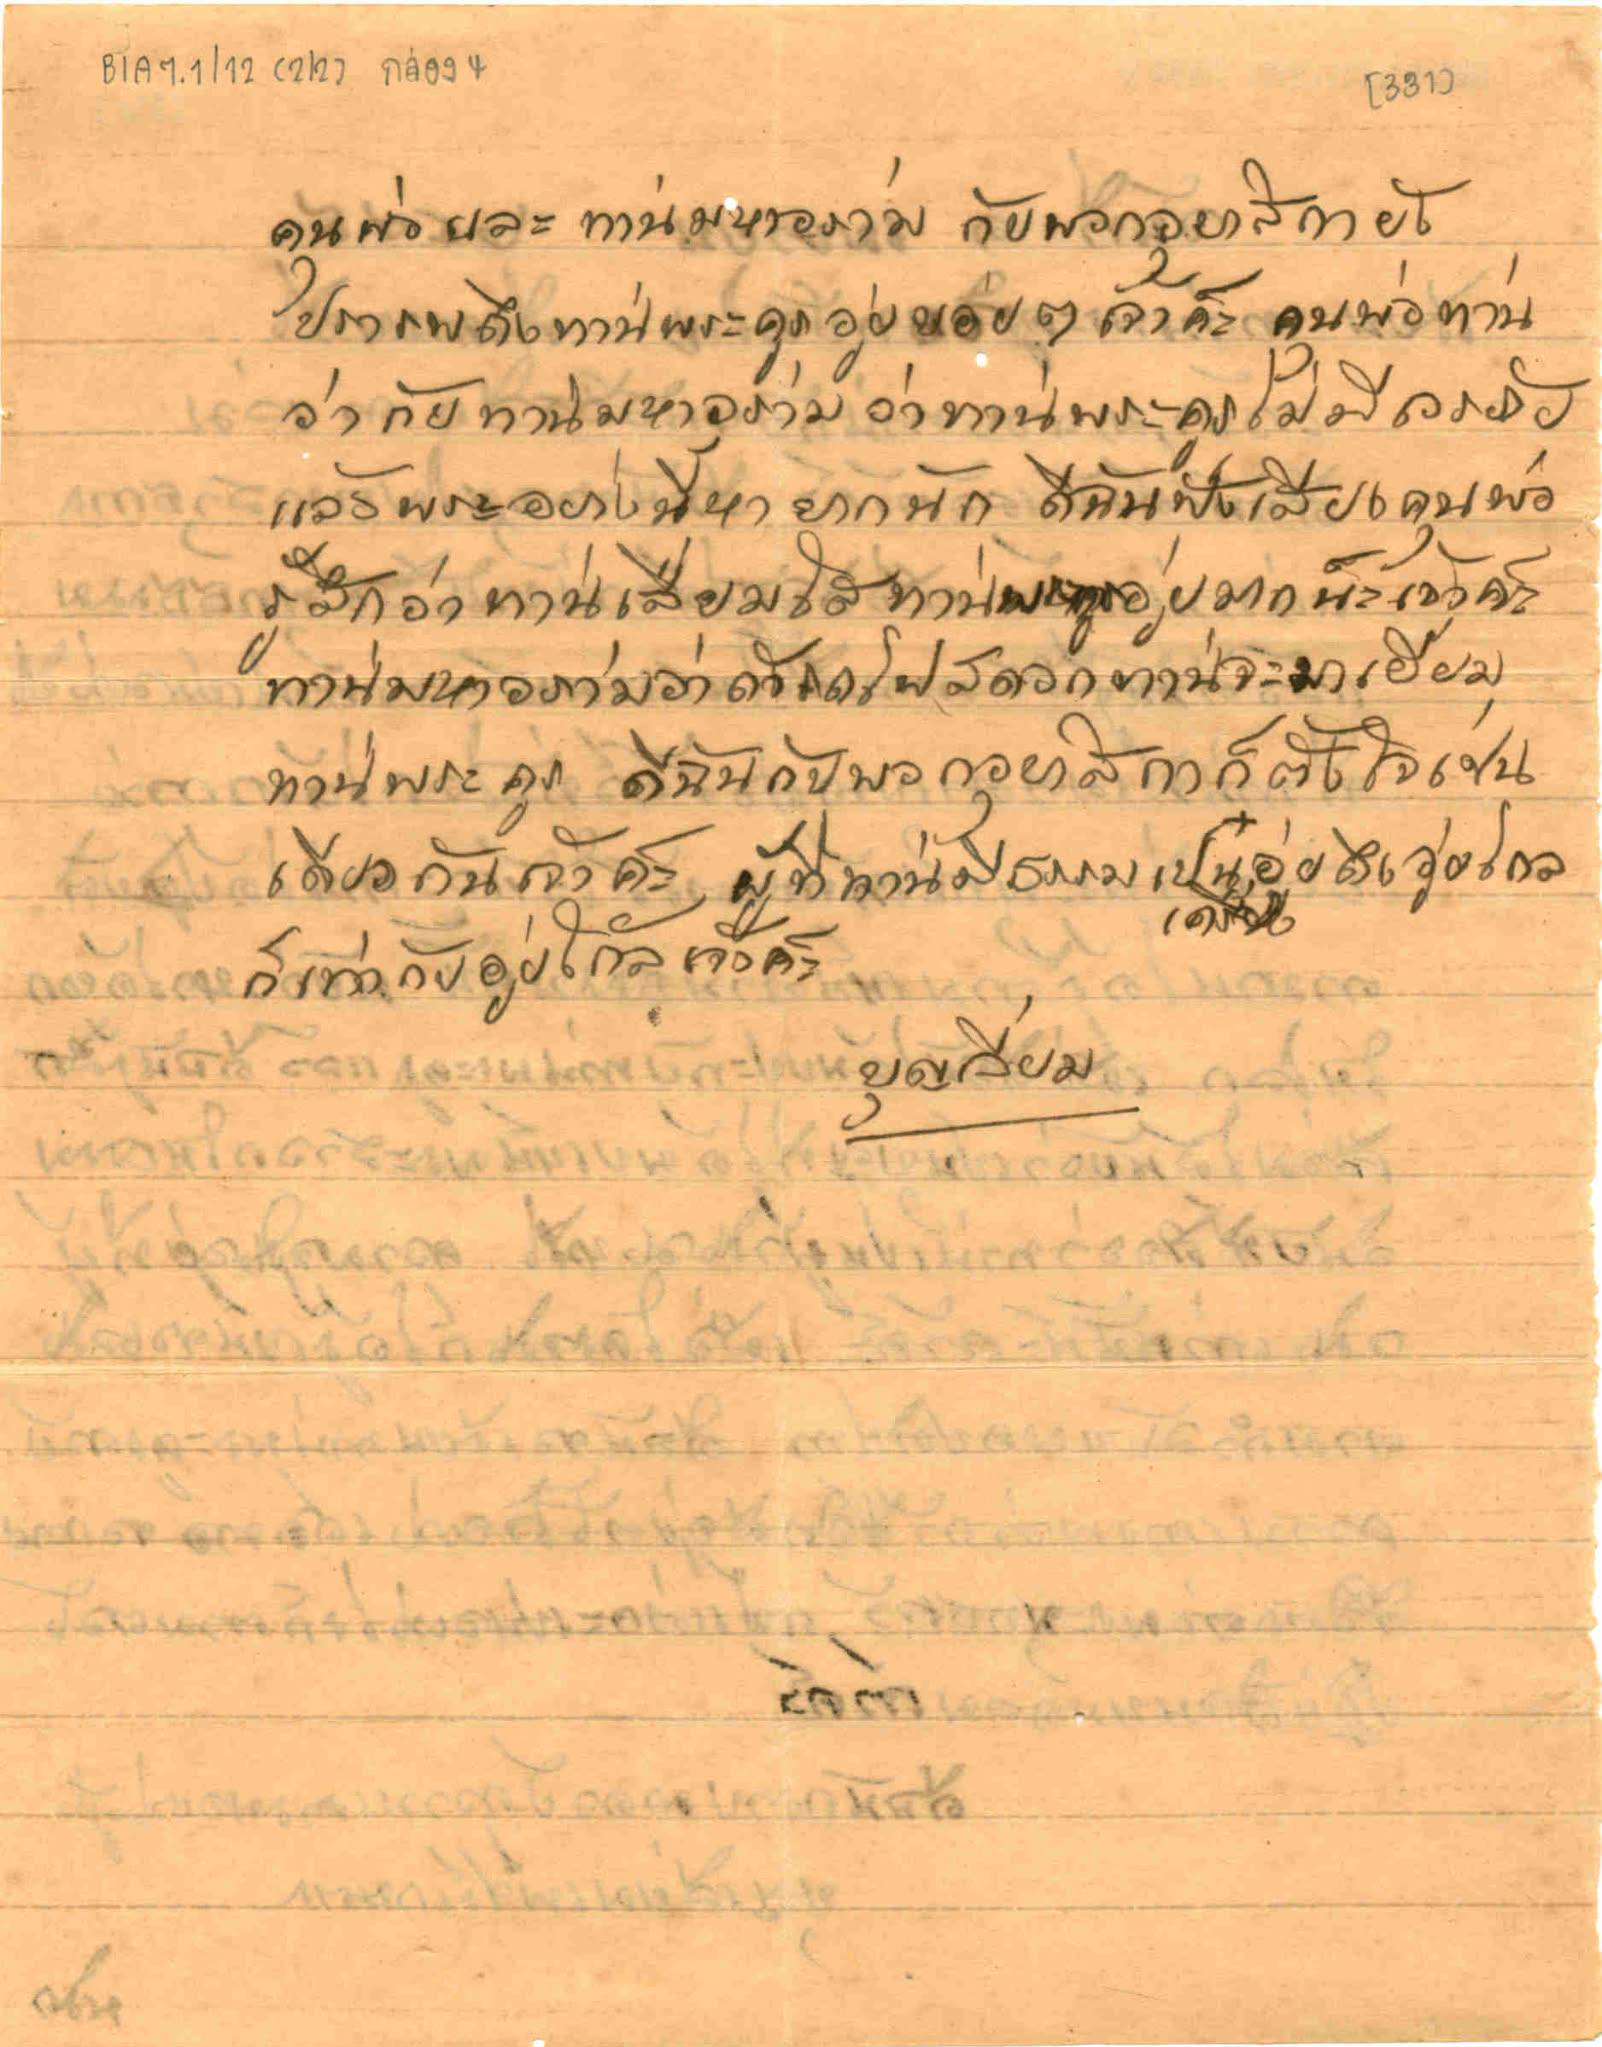 BIA ๆ.1/12 (2/2) กล่อง 4
[331]
คุนพ่อ และ ทาน่มหาอร่าม กับพวกอุบาสิกายัง
ปรารพถึงทาน่พระครูอยู่บ่อยๆ เจ้าค๊ะ คุนพ่อทาน่
ว่ากับทาน่มหาอร่าม ว่าทาน่พระครูไม่มีเวรภัย
แลวพระอยางนี้หายากนัก ดีฉันฟังเสียงคุนพ่อ
รู้สึกว่าทาน่เลื่อมใสทาน่พระครูอยู่มากน๊ะเจ้าค๊ะ
ทาน่มหาอร่ามว่า ทาน่จะมาเยี่ยม
ทาน่พระครู ดีฉันกับพวกอุบาสิกาก็ตั้งใจเช่น
เดียวกันเจ้าค๊ะ ผู้ที่ทาน่มีธรรมเป็นอยู่ถึงอยู่ไกล
ก็เท่ากับอยู่ใกล้เจ้าค๊ะ
บุญเลี่ยม